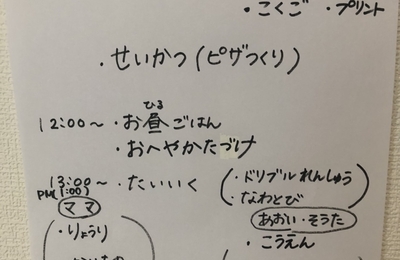 ・こくご ・プリント
・せいかつ(ピザつくり)
12:00~ ・お昼ごはん
ひる
・おへやかたづけ
13:00~ ・たいいく
PM(1:00)
(・ドリブルれんしゅう
・なわとび)
ママ
あおい・そうた
・りょうり
・こうえん